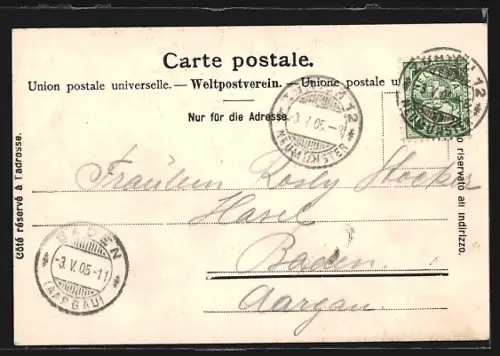 Carte postale.
Union postale universelle. — Weltpostverein. — Unione postale u
Nur für die Adresse.
ZÜRICH 12
3.V.05.-9
NEUMÜNSTER
12
Côté réservé à l'adrosse.
o riservato all indirizzo.
Fräulein Rosly Stocker
Hasel
Baden
Aargau.
BADEN
-3.V.05-11
(AARGAU)